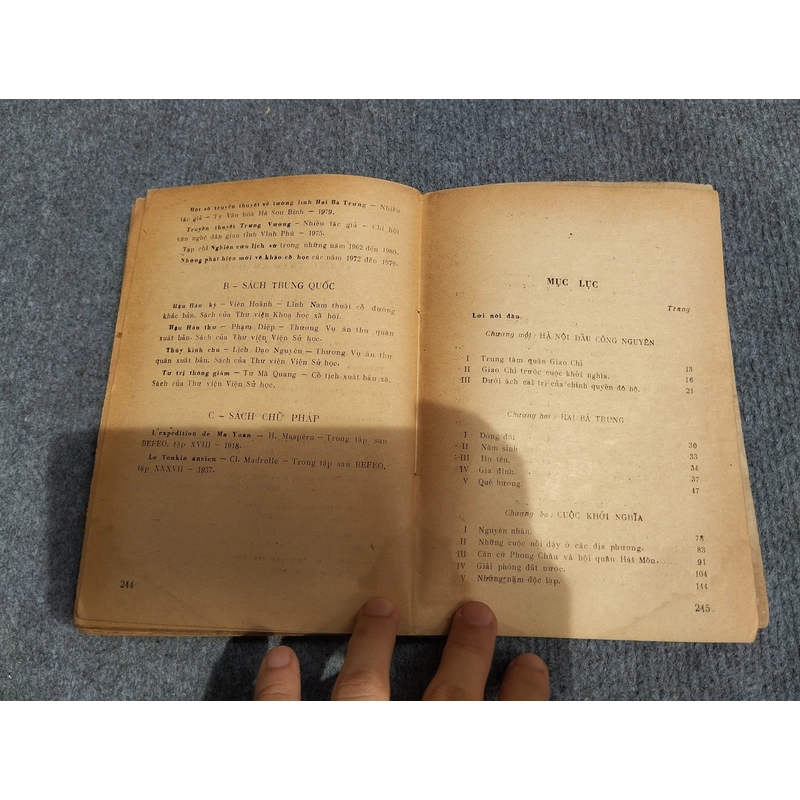 Một số truyền thuyết về tướng lĩnh Hai Bà Trưng – Nhiều
tác giả – Ty Văn hóa Hà Sơn Bình – 1979.
Truyền thuyết Trưng Vương – Nhiều tác giả – Chi hội
văn nghệ dân gian tỉnh Vĩnh Phú – 1975.
Tạp chí Nghiên cứu lịch sử trong những năm 1962 đến 1980.
Những phát hiện mới về khảo cổ học các năm 1972 đến 1979.
B – SÁCH TRUNG QUỐC
Hậu Hán kỷ – Viên Hoành – Lĩnh Nam thuật cổ đường
khắc bản. Sách của Thư viện Khoa học xã hội.
Hậu Hán thư – Phạm Diệp – Thương Vụ ấn thư quán
xuất bản. Sách của Thư viện Viện Sử học.
Thủy kinh chú – Lịch Đạo Nguyên – Thương Vụ ấn thư
quán xuất bản. Sách của Thư viện Viện Sử học.
Tư trị thông giám – Tư Mã Quang – Cổ tịch xuất bản xã.
Sách của Thư viện Viện Sử học.
C – SÁCH CHỮ PHÁP
L'expédition de Ma Yuan – H. Maspéro – Trong tập san
BEFEO, tập XVIII – 1918.
Le Tonkin ancien – Cl. Madrolle – Trong tập san BEFEO,
tập XXXVII – 1937.
244
MỤC LỤC
Trang
Lời nói đầu.
Chương một : HÀ NỘI ĐẦU CÔNG NGUYÊN
I Trung tâm quận Giao Chỉ 13
II Giao Chỉ trước cuộc khởi nghĩa. 16
III Dưới ách cai trị của chính quyền đô hộ. 21
Chương hai : HAI BÀ TRƯNG
I Dòng dõi 30
II Năm sinh 33
III Họ tên. 34
IV Gia đình. 37
V Quê hương. 47
Chương ba : CUỘC KHỞI NGHĨA
I Nguyên nhân. 78
II Những cuộc nổi dậy ở các địa phương. 83
III Căn cứ Phong Châu và hội quân Hát Môn. 91
IV Giải phóng đất nước. 104
V Những năm độc lập. 144
245